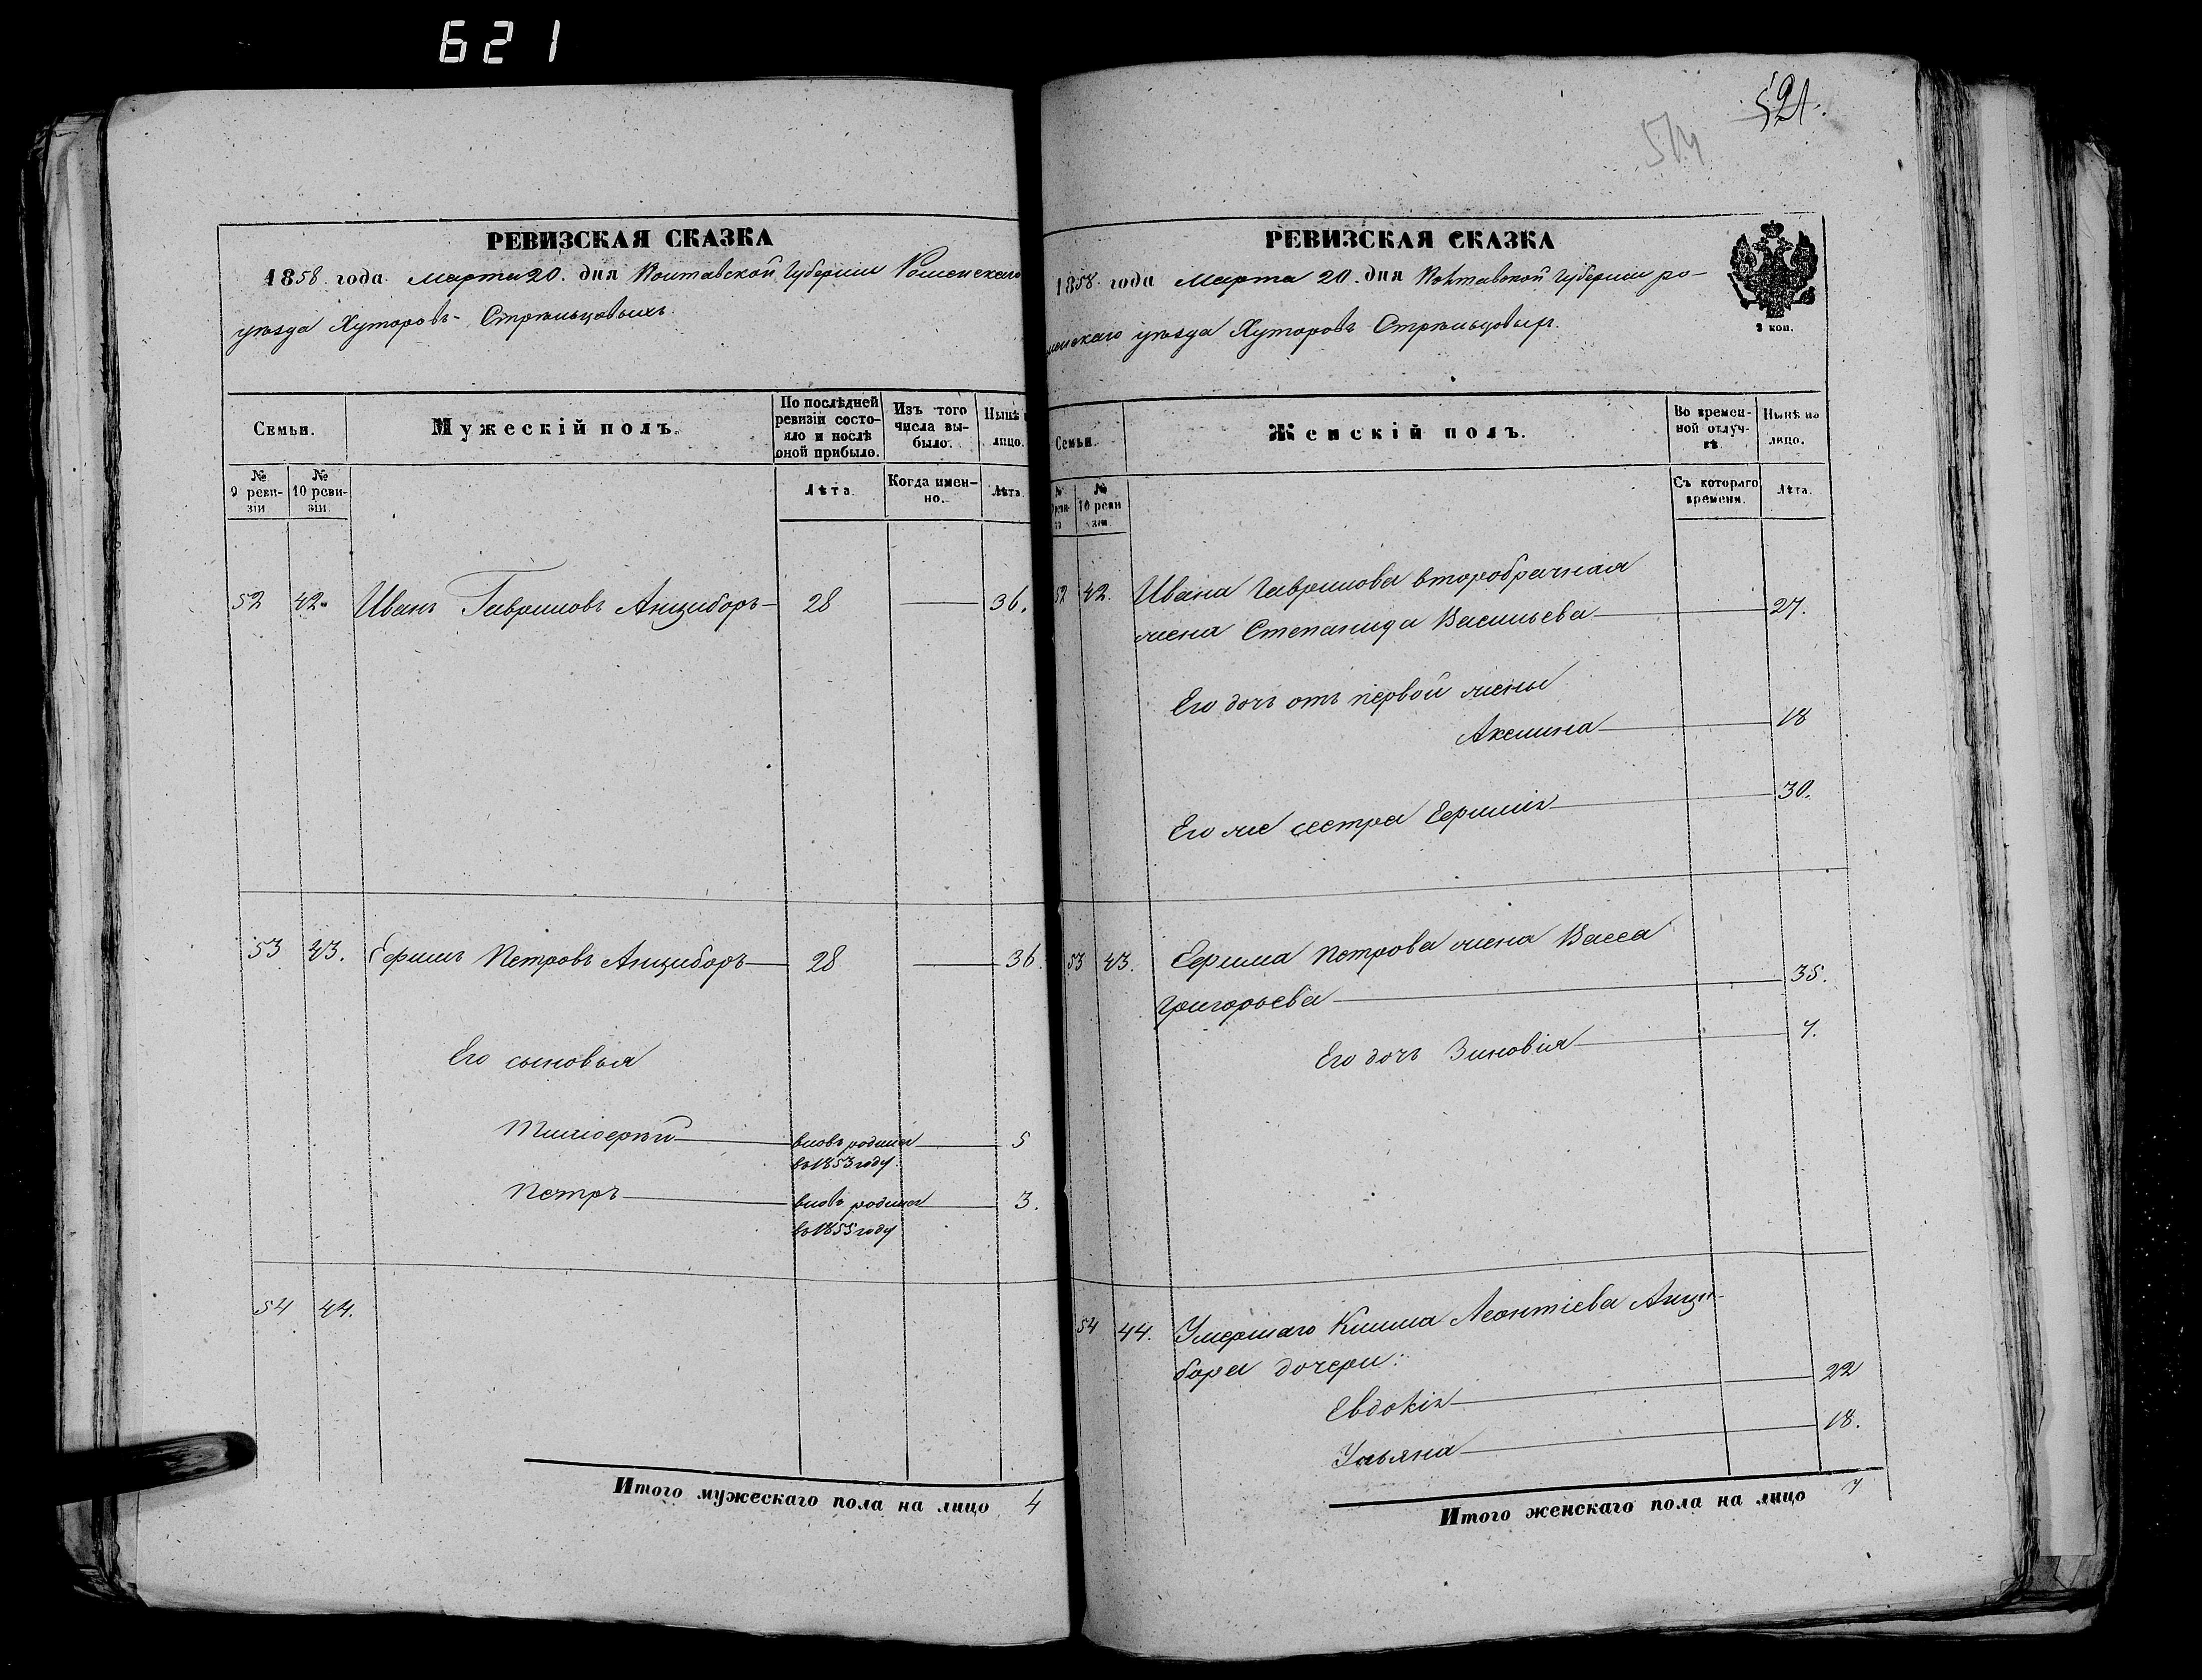 621
РЕВИЗСКАЯ СКАЗКА
1858 года Марта 20. дня Полтавской Губернии Роменскаго
уѣзда Хуторовъ Стрѣльцовыхъ
Семьи.
Мужескій полъ.
По послѣдней ревизіи состояло и послѣ оной прибыло.
Изъ того числа выбыло.
Нынѣ
лицо.
№ 9 ревизіи
№ 10 ревизіи.
Лѣта.
Когда именно.
Лѣта.
52 42. Иванъ Гавриловъ Анцыборъ 28 36.
53 43. Ефимъ Петровъ Анцыборъ 28 36.
Его сыновья
Тимофей вновь родился 5
въ 1853 году.
Петръ вновь родился 3.
въ 1855 году
54 44.
Итого мужескаго пола на лицо 4
521.
574
РЕВИЗСКАЯ СКАЗКА
1858 года Марта 20. дня Полтавской Губерніи Ро-
менскаго уѣзда Хуторовъ Стрѣльцовыхъ.
2 коп.
Семьи.
Женскій полъ.
Во временной отлучкѣ.
Нынѣ на лицо.
№ 10 ревизіи.
Съ котораго времени.
Лѣта.
52 42. Ивана Гаврилова второбрачная
жена Степанида Васильева 27.
Его дочь отъ первой жены
Акилина 18
Его же сестра Ефимія 30.
53 43. Ефима Петрова жена Васса
Григорьева 35.
Его дочь Зиновія 7.
54 44. Умершаго Климa Леонтіева Анцы-
бора дочери:
Евдокія 22
Ульяна 18.
Итого женскаго пола на лицо 7